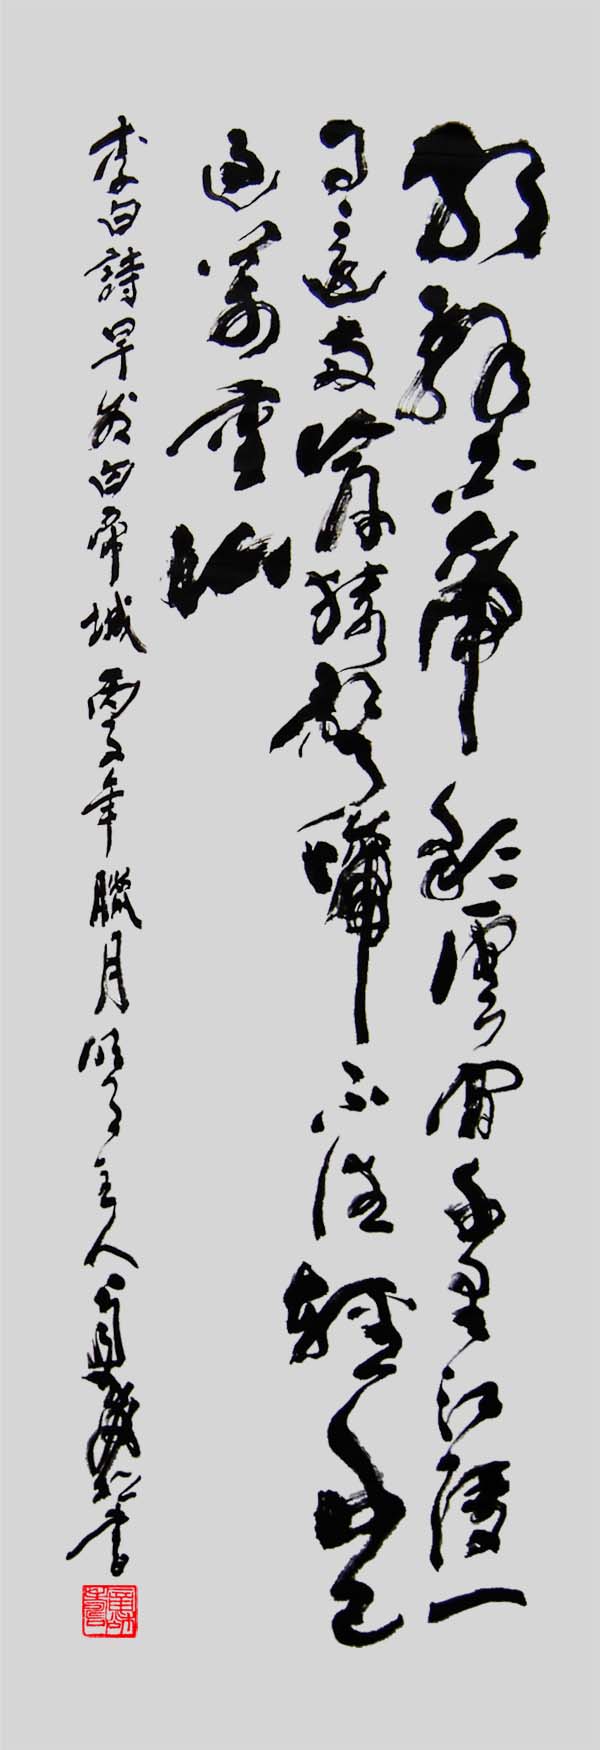 朝辭白帝彩雲間千里江陵一
日還兩岸猿聲啼不住輕舟已
過萬重山
李白詩早發白帝城 年臘月 主人 書